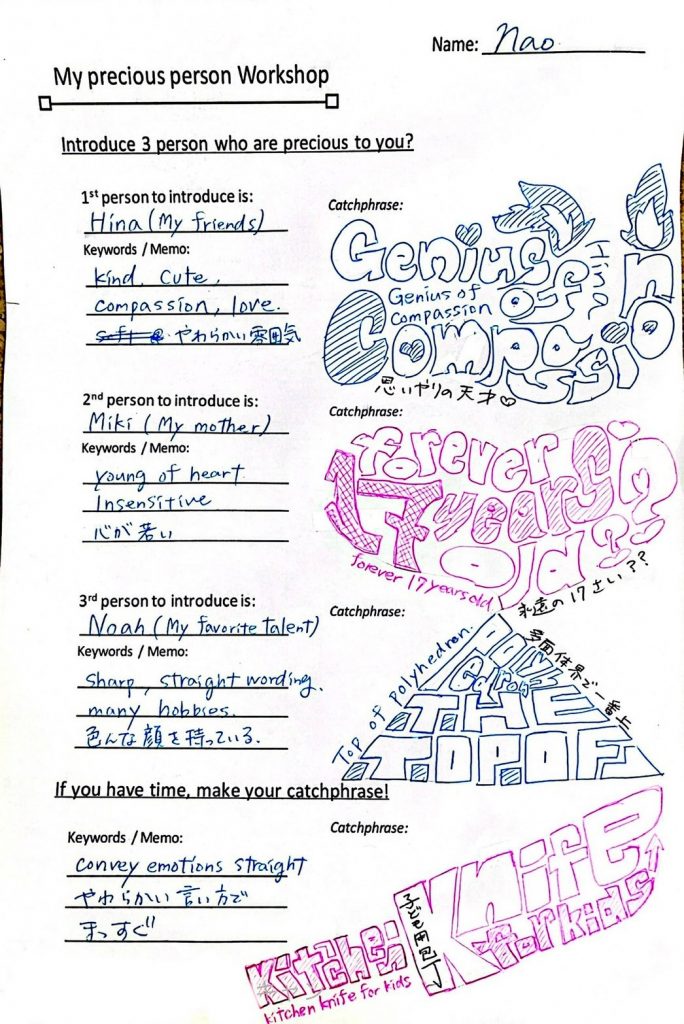 Name: Nao
My precious person Workshop
Introduce 3 person who are precious to you?
1st person to introduce is:
Hina (My friends)
Keywords / Memo:
kind, cute,
compassion, love.
やわらかい雰囲気
Catchphrase:
Genius
of
Compassion
Hina
Genius of
compassion
思いやりの天才♡
2nd person to introduce is:
Miki (My mother)
Keywords / Memo:
young of heart
Insensitive
心が若い
Catchphrase:
forever
17 years
old??
forever 17 years old
永遠の17さい??
3rd person to introduce is:
Noah (My favorite talent)
Keywords / Memo:
Sharp, straight wording.
many hobbies.
色んな顔を持っている.
Catchphrase:
Top of polyhedron.
多面体界で一番上
Polyhedron
THE
TOP OF
If you have time, make your catchphrase!
Keywords / Memo:
convey emotions straight
やわらかい言い方で
まっすぐ
Catchphrase:
Kitchen
Knife
for kids
kitchen knife for kids